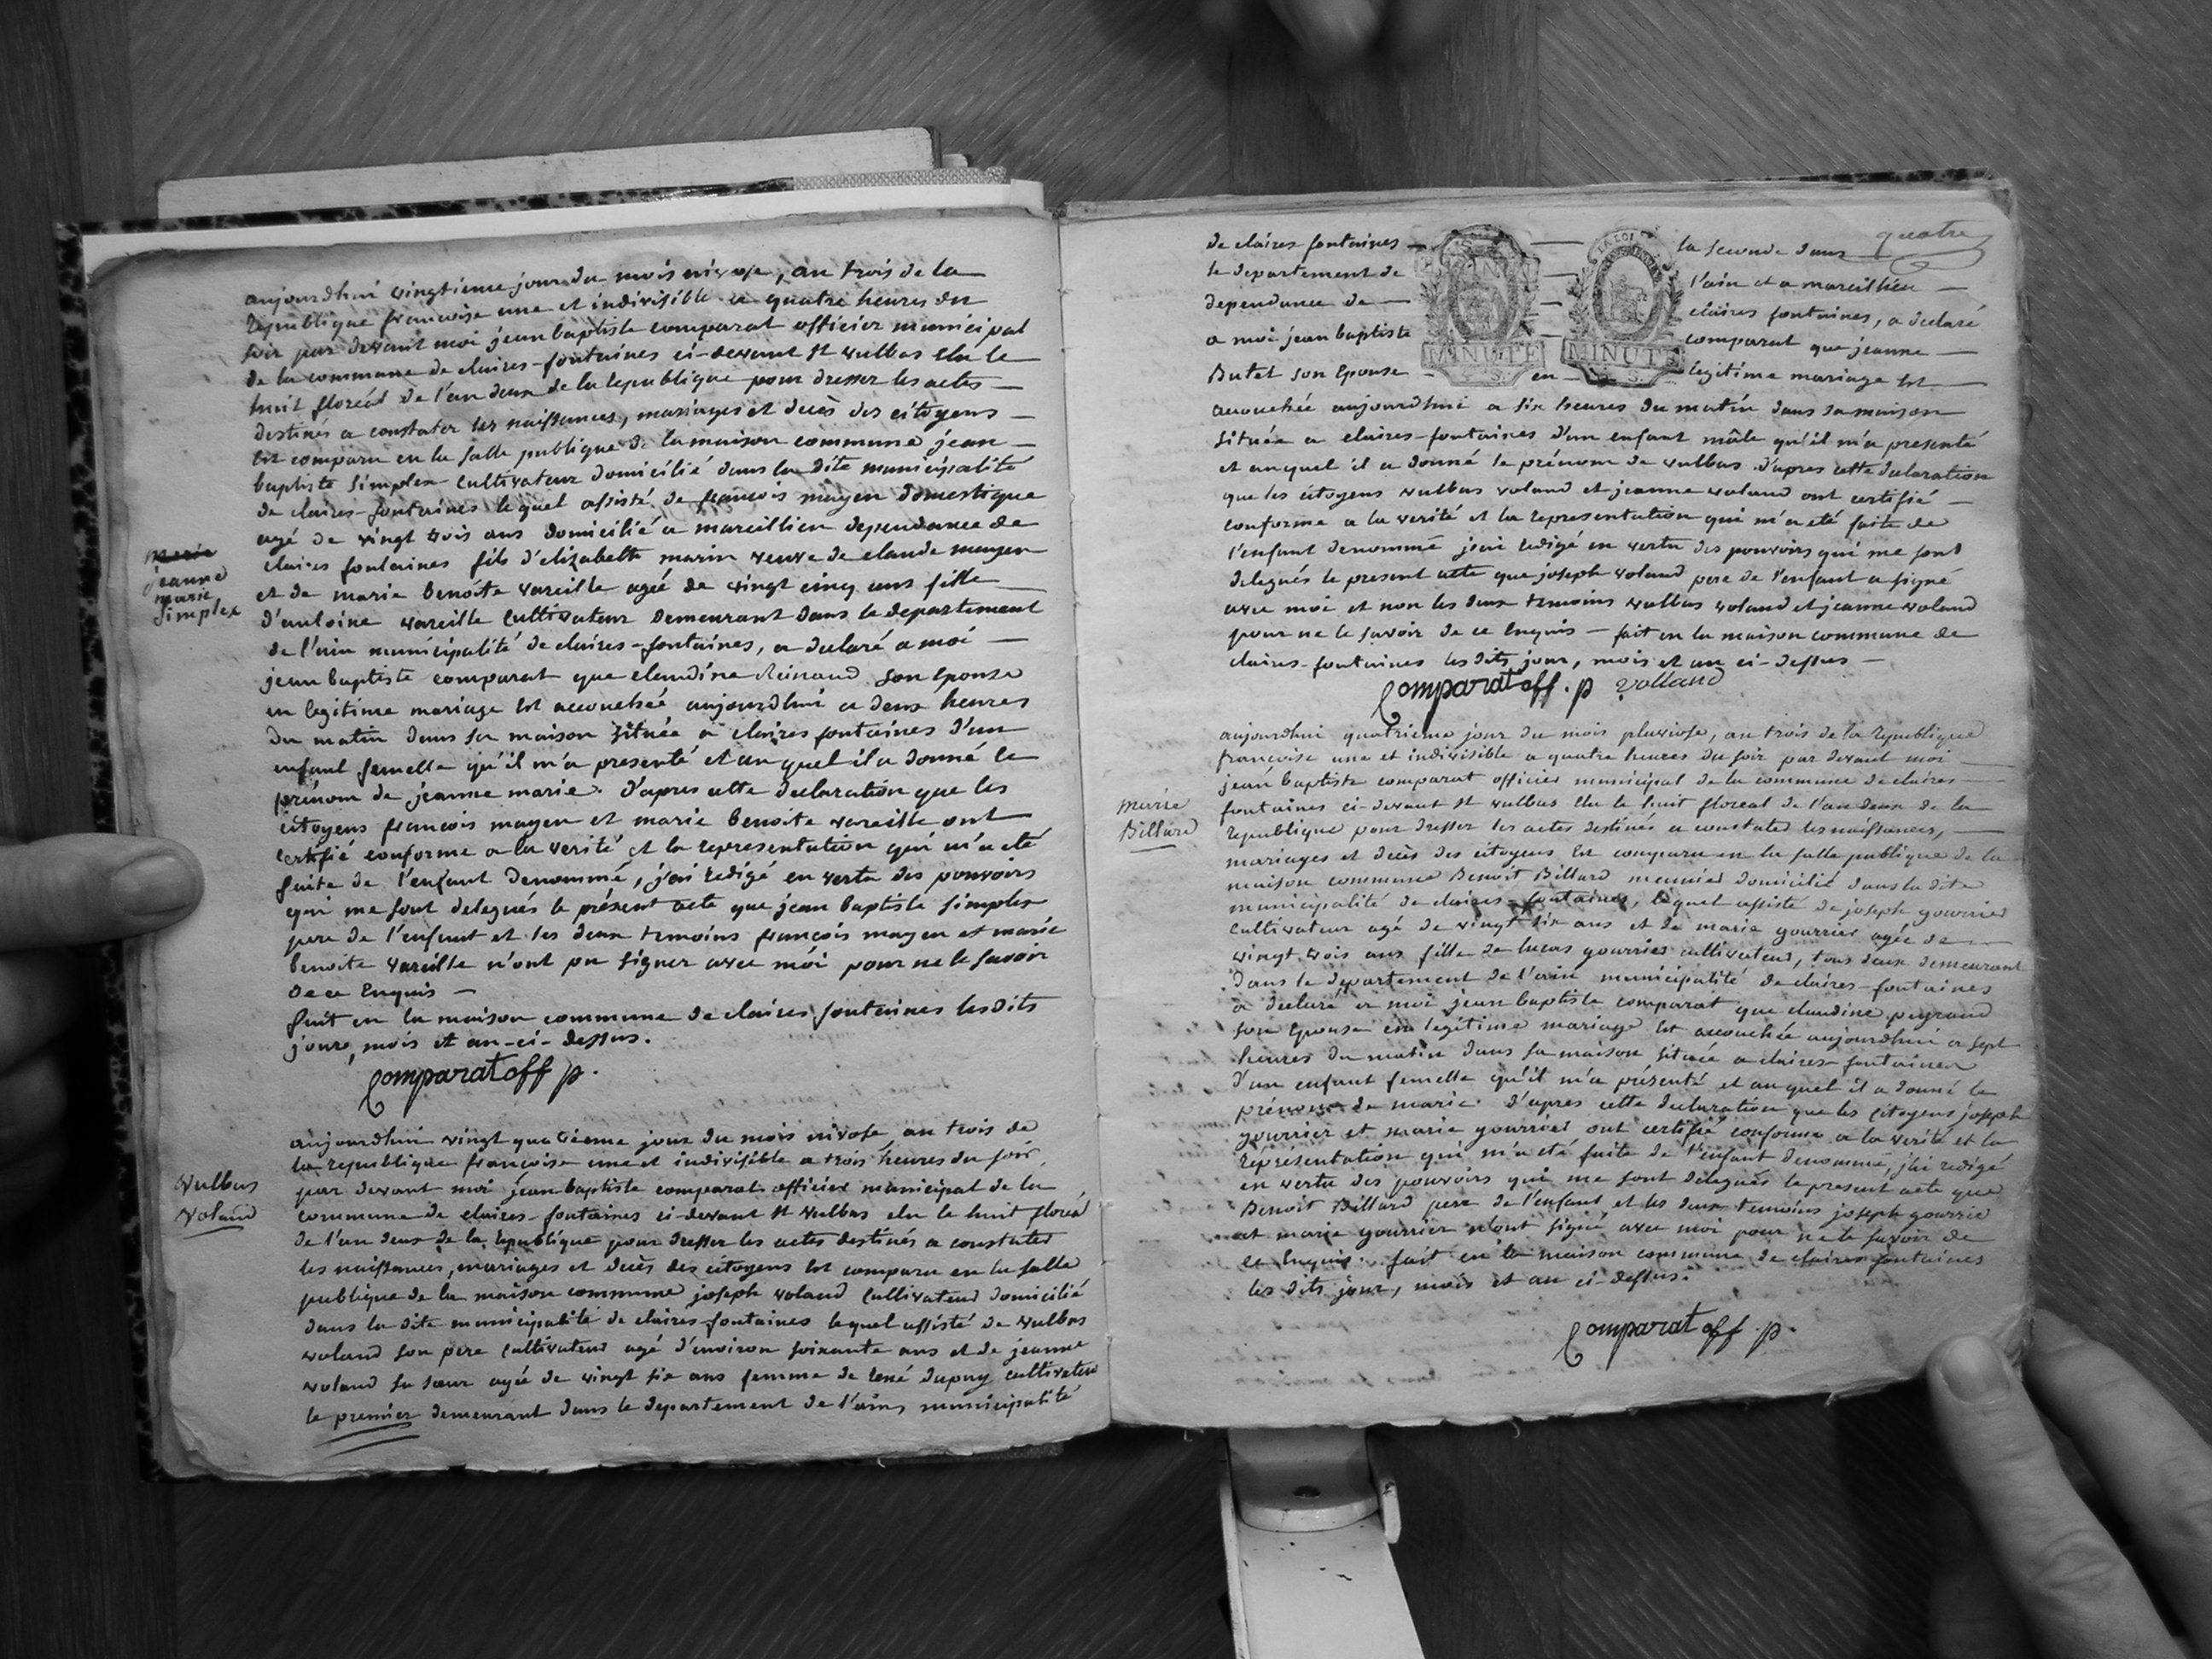 aujourdhui vingtieme jour du mois nivose, an trois de la
republique francoise une et indivisible a quatre heures du
soir par devant moi jean baptiste comparat officier municipal
de la commune de claires-fontaines ci-devant st vulbas elu le
huit floréal de l'an deux de la republique pour dresser les actes
destinés a constater les naissances, mariages et decès des citoyens
est comparu en la salle publique de la maison commune jean
baptiste simplex cultivateur domicilié dans la dite municipalité
de claires-fontaines lequel assisté de françois mayen domestique
agé de vingt trois ans domicilié a mareillieu dependance de
claires fontaines fils d'elizabeth marin veuve de claude mayen
et de marie benoite vareille agée de vingt cinq ans fille
d'antoine vareille cultivateur demeurant dans le departement
de l'ain municipalité de claires-fontaines, a declaré a moi
jean baptiste comparat que claudine Reinaud son epouse
en legitime mariage est accouchée aujourdhui a deux heures
du matin dans sa maison située a claires fontaines d'un
enfant femelle qu'il m'a presenté et auquel il a donné le
prénom de jeanne marie. d'apres cette declaration que les
citoyens françois mayen et marie benoite vareille ont
certifié conforme a la verité et la representation qui m'a eté
faite de l'enfant denommé, j'ai redigé en vertu des pouvoirs
qui me sont delegués le présent acte que jean baptiste simplex
pere de l'enfant et les deux temoins françois mayen et marie
benoite vareille n'ont pu signer avec moi pour ne le savoir
de ce enquis
fait en la maison commune de claires fontaines lesdits
jours, mois et an-ci-dessus.
Comparat off p.
jeanne
marie
simplex
aujourdhui vingt quatrieme jour du mois nivose an trois de
la republique francoise une et indivisible a trois heures du soir
par devant moi jean baptiste comparat officier municipal de la
commune de claires-fontaines ci-devant st vulbas elu le huit floréal
de l'an deux de la republique pour dresser les actes destinés a constater
les naissances, mariages et decès des citoyens est comparu en la salle
publique de la maison commune joseph voland cultivateur domicilié
dans la dite municipalité de claires-fontaines lequel assisté de vulbas
voland son pere cultivateur agé d'environ soixante ans et de jeanne
voland sa sœur agée de vingt six ans femme de rené dupuy cultivateur
le premier demeurant dans le departement de l'ain, municipalité
vulbas
voland
quatre
de claires-fontaines la seconde dans
le departement de l'ain et a mareillieu
dependance de claires fontaines, a declaré
a moi jean baptiste comparat que jeanne
Butet son epouse en legitime mariage est
LA LOI
MINUTE
MINUTE
accouchée aujourdhui a six heures du matin dans sa maison
située a claires-fontaines d'un enfant mâle qu'il m'a presenté
et auquel il a donné le prénom de vulbas d'apres cette declaration
que les citoyens vulbas voland et jeanne voland ont certifié
conforme a la verité et la representation qui m'a eté faite de
l'enfant denommé j'ai redigé en vertu des pouvoirs qui me sont
delegués le present acte que joseph voland pere de l'enfant a signé
avec moi et non les deux temoins vulbas voland et jeanne voland
pour ne le savoir de ce enquis – fait en la maison commune de
claires-fontaines les dits jour, mois et an ci-dessus
Comparat off. p volland
aujourdhui quatrieme jour du mois pluviose, an trois de la republique
françoise une et indivisible a quatre heures du soir par devant moi
jean baptiste comparat officier municipal de la commune de claires
fontaines ci-devant st vulbas elu le huit floreal de l'an deux de la
republique pour dresser les actes destinés a constater les naissances,
mariages et decès des citoyens est comparu en la salle publique de la
maison commune Benoit Billard meunier domicilié dans la dite
municipalité de claires-fontaines, lequel assisté de joseph gourrier
cultivateur agé de vingt six ans et de marie gourrier agée de
vingt trois ans fille de lucas gourrier cultivateur, tous deux demeurant
dans le departement de l'ain municipalité de claires-fontaines
a declaré a moi jean baptiste comparat que claudine peyraud
son epouse en legitime mariage est accouchée aujourdhui a sept
heures du matin dans sa maison située a claires-fontaines
d'un enfant femelle qu'il m'a présenté et auquel il a donné le
prénom de marie. d'apres cette declaration que les citoyens joseph
gourrier et marie gourrier ont certifié conforme a la verité et la
représentation qui m'a eté faite de l'enfant denommé, j'ai redigé
en vertu des pouvoirs qui me sont delegués le present acte que
Benoit Billard pere de l'enfant, et les deux temoins joseph gourrier
et marie gourrier n'ont signé avec moi pour ne le savoir de
ce enquis. fait en la maison commune de claires fontaines
les dits jour, mois et an ci-dessus.
Comparat off. p.
marie
Billard